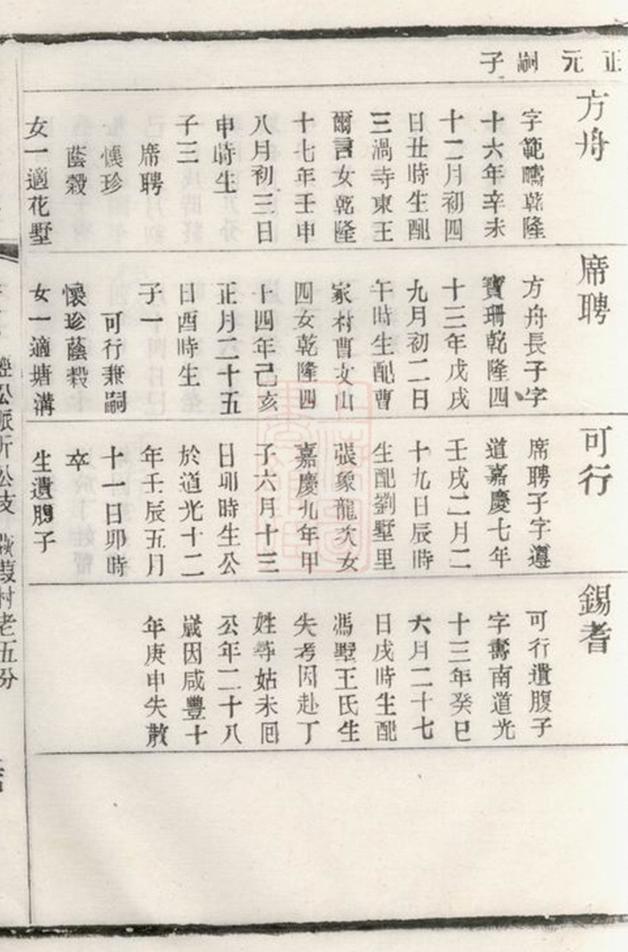 正元嗣子
方舟
字範疇乾隆
十六年辛未
十二月初四
日丑時生配
三渦寺東王
爾言女乾隆
十七年壬申
八月初三日
申時生
子三
席聘
懷珍
蔭穀
女一適花墅
席聘
方舟長子字
寶珊乾隆四
十三年戊戌
九月初二日
午時生配曹
家村曹女山
四女乾隆四
十四年己亥
正月二十五
日酉時生
子一
可行兼嗣
懷珍蔭穀
女一適塘溝
可行
席聘子字遵
道嘉慶七年
壬戌二月二
十九日辰時
生配劉墅里
張象龍次女
嘉慶九年甲
子六月十三
日卯時生公
於道光十二
年壬辰五月
十一日卯時
卒
生遺腹子
錫耇
可行遺腹子
字壽南道光
十三年癸巳
六月二十七
日戌時生配
馮墅王氏生
失考因赴丁
姓尋姑未囘
公年二十八
歲因咸豐十
年庚申失散
公派所公支 村老五分